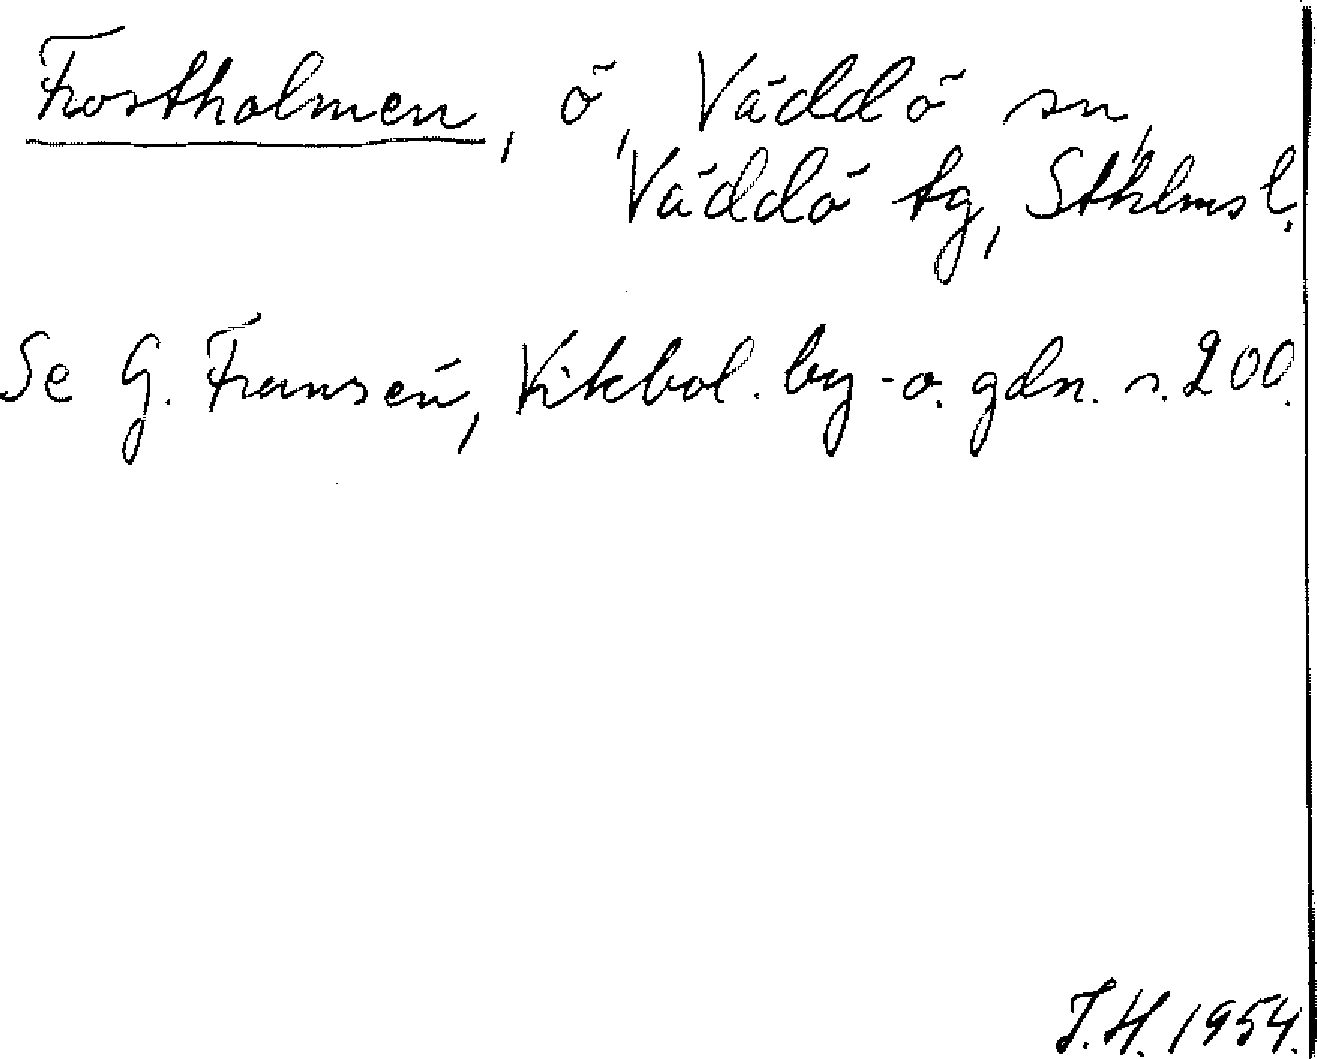 Frostholmen, ö, Väddö sn,
Väddö tg, Sthlms l.
Se G. Fransén, Vikbol. by- o. gdn. s. 200.
J.H. 1954.